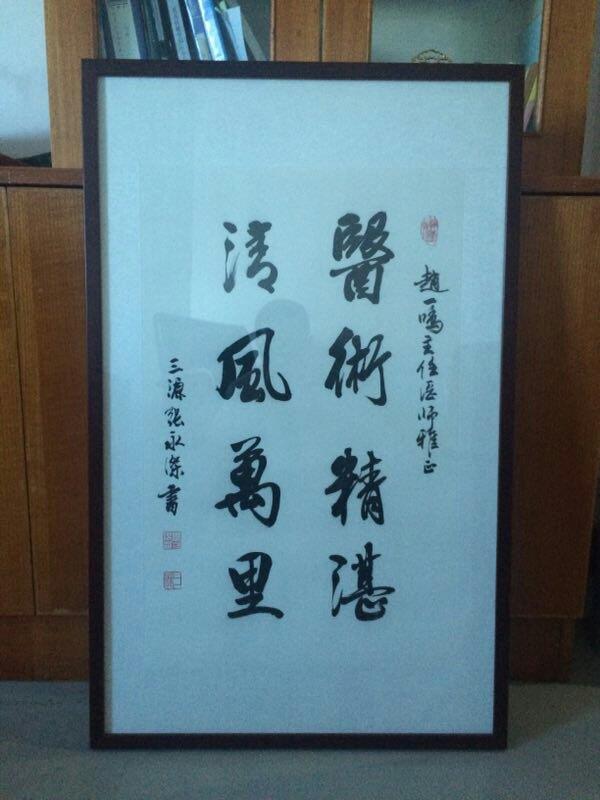 趙一鳴主任医师雅正
醫術精湛
清風萬里
三源張永深書